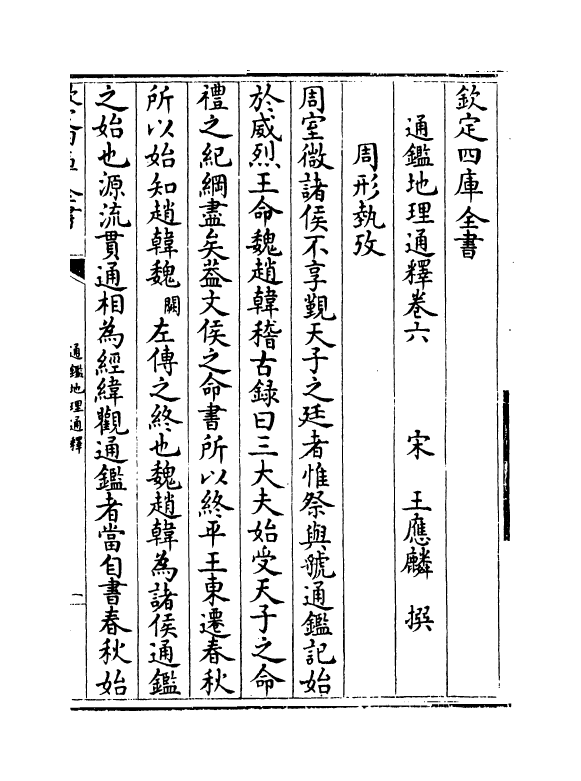 欽定四庫全書
通鑑地理通釋卷六　宋　王應麟　撰
周形執攷
周室微諸侯不享覲天子之廷者惟祭與虢通鑑記始
於威烈王命魏趙韓稽古録曰三大夫始受天子之命
禮之紀綱盡矣葢文侯之命書所以終平王東遷春秋
所以始知趙韓魏闕左傳之終也魏趙韓為諸侯通鑑
之始也源流貫通相為經緯觀通鑑者當自書春秋始
通鑑地理通釋